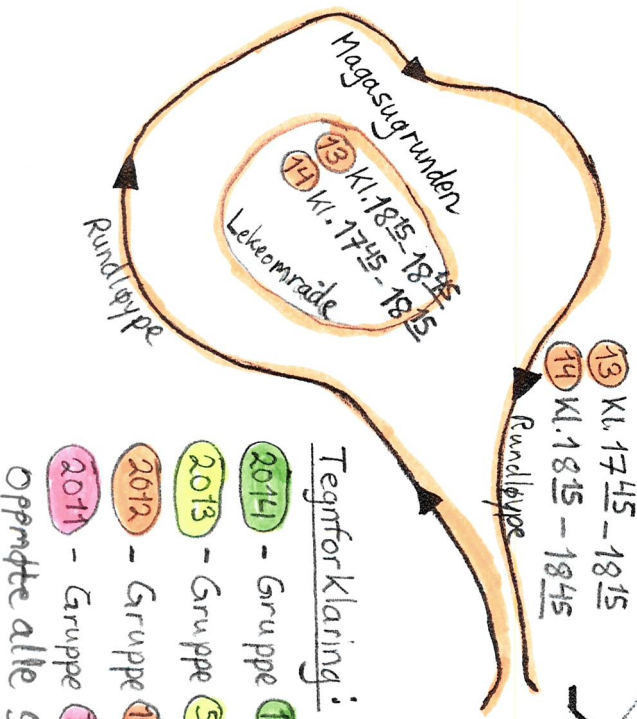 Magasugrunden
13 Kl. 18 15 - 18 45
14 Kl. 17 45 - 18 15
Lekeområde
Rundløype
13 Kl. 17 45 - 18 15
14 Kl. 18 15 - 18 45
Rundløype
Tegnforklaring:
2014 - Gruppe
2013 - Gruppe
2012 - Gruppe
2011 - Gruppe
Oppmøte alle